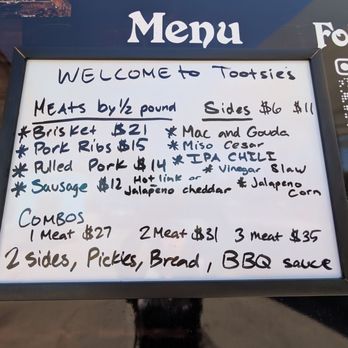 Menu
Fo
WELCOME to Tootsie's
MEATS by 1/2 pound
Sides $6 $11
* Brisket $21
* Mac and Gouda
* Pork Ribs $15
* Miso Cesar
* Pulled Pork $14
* IPA CHILI
* Vinegar Slaw
* Sausage $12 Hot link or Jalapeno cheddar
* Jalapeno Corn
COMBOS
1 Meat $27 2 Meat $31 3 meat $35
2 Sides, Pickles, Bread, BBQ sauce